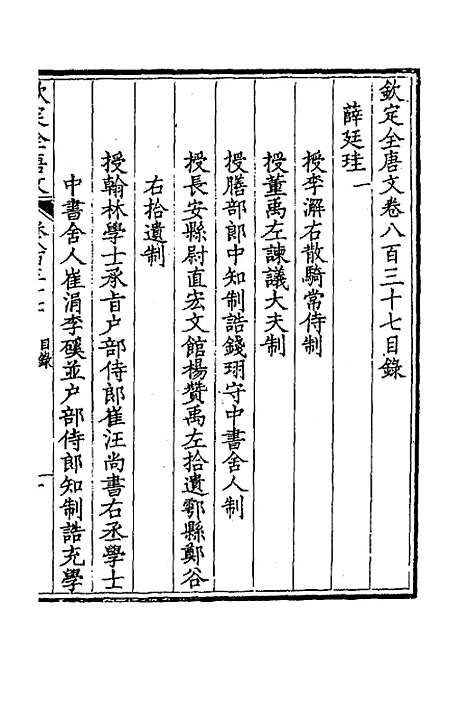 欽定全唐文卷八百三十七目錄
薛廷珪一
授李澥右散騎常侍制
授董禹左諫議大夫制
授膳部郎中知制誥錢珝守中書舍人制
授長安縣尉直宏文館楊贊禹左拾遺鄠縣鄭谷
右拾遺制
授翰林學士承旨户部侍郎崔汪尚書右丞學士
中書舍人崔涓李磎並户部侍郎知制誥充學
欽定全唐文
目錄